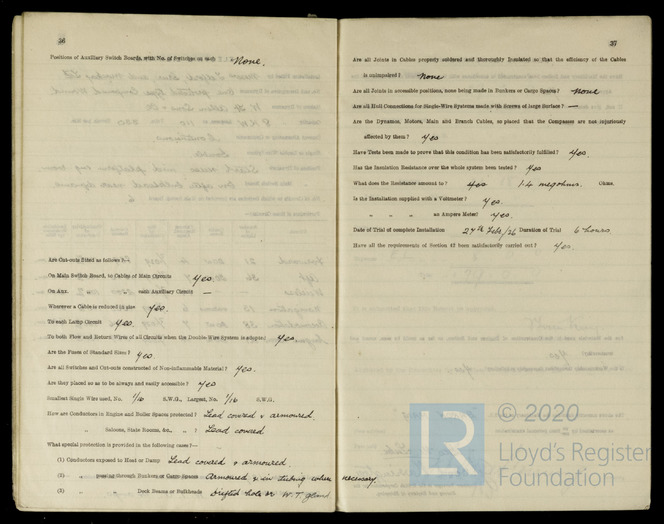 36
Positions of Auxiliary Switch Boards, with No. of Switches on each None.
Are Cut-outs fitted as follows:—
On Main Switch Board, to Cables of Main Circuits yes.
On Aux. " " each Auxiliary Circuit —
Wherever a Cable is reduced in size yes.
To each Lamp Circuit yes.
To both Flow and Return Wires of all Circuits when the Double-Wire System is adopted yes.
Are the Fuses of Standard Sizes? yes.
Are all Switches and Cut-outs constructed of Non-inflammable Material? yes.
Are they placed so as to be always and easily accessible? yes
Smallest Single Wire used, No. 1/16 S.W.G., Largest, No. 1/16 S.W.G.
How are Conductors in Engine and Boiler Spaces protected? Lead covered & armoured.
" Saloons, State Rooms, &c., " ? Lead covered
What special protection is provided in the following cases?—
(1) Conductors exposed to Heat or Damp Lead covered & armoured.
(2) " passing through Bunkers or Cargo Spaces Armoured & in tubing where necessary
(3) " " Deck Beams or Bulkheads hole or W.T. gland
37
Are all Joints in Cables properly soldered and thoroughly insulated so that the efficiency of the Cables
is unimpaired? None
Are all Joints in accessible positions, none being made in Bunkers or Cargo Spaces? None
Are all Hull Connections for Single-Wire Systems made with Screws of large Surface? —
Are the Dynamos, Motors, Main and Branch Cables, so placed that the Compasses are not injuriously
affected by them? yes
Have Tests been made to prove that this condition has been satisfactorily fulfilled? yes.
Has the Insulation Resistance over the whole system been tested? yes
What does the Resistance amount to? 1.4 megohms. Ohms.
Is the Installation supplied with a Voltmeter? yes.
" " " an Ampère Meter? yes.
Date of Trial of complete Installation 27th Feby/26 Duration of Trial 6 hours
Have all the requirements of Section 42 been satisfactorily carried out? yes.
© 2020
LR
Lloyd's Register
Foundation